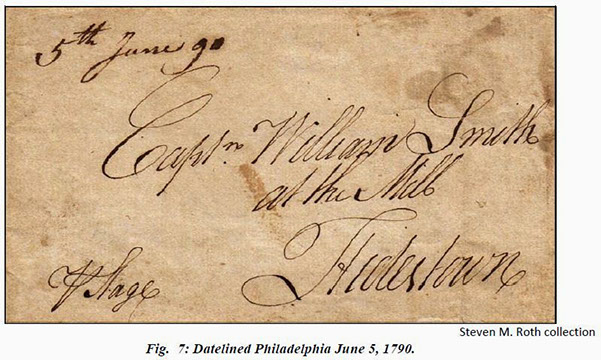 5th June 90
Captn William Smith
at the Mill
Hidestown
⅌ Stage
Steven M. Roth collection
Fig. 7: Datelined Philadelphia June 5, 1790.